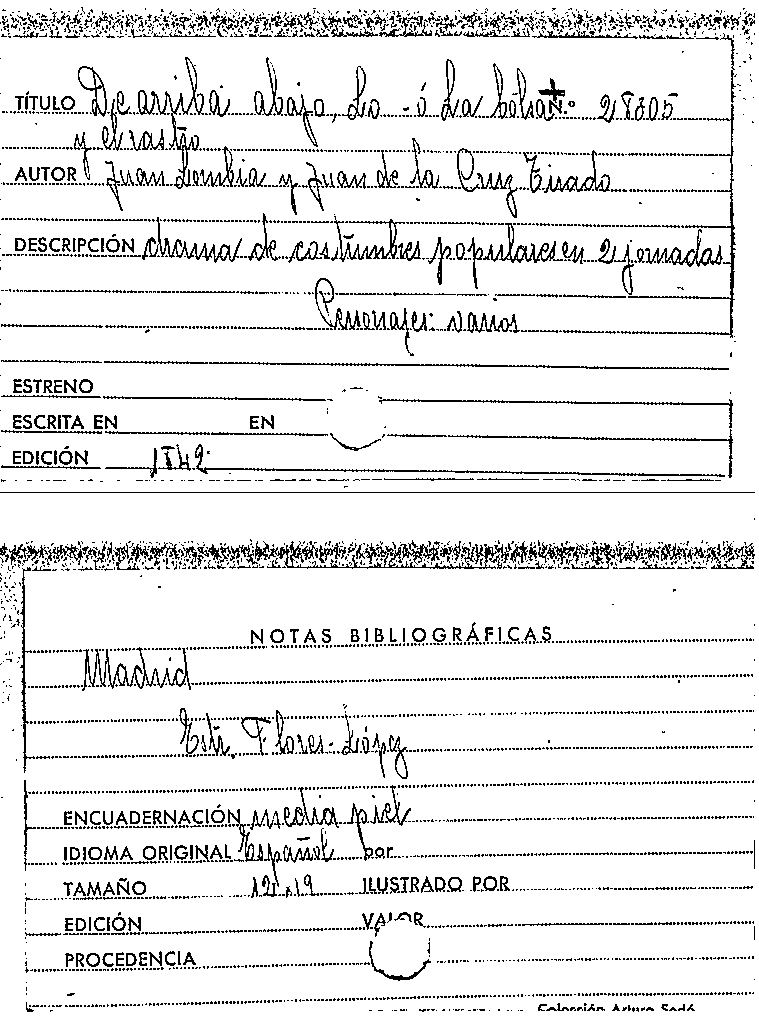 TÍTULO De arriba abajo, Lo - ó La bolsa N.º 28305
y el rastro
AUTOR Juan Lombia y Juan de la Cruz Tirado
DESCRIPCIÓN drama de costumbres populares en 2 jornadas
Personajes: varios
ESTRENO
ESCRITA EN EN
EDICIÓN 1842
NOTAS BIBLIOGRÁFICAS
Madrid
Estr. Flores-López
ENCUADERNACIÓN media piel
IDIOMA ORIGINAL Español por
TAMAÑO 12,19 ILUSTRADO POR
EDICIÓN VALOR
PROCEDENCIA
Colección Arturo Sedó